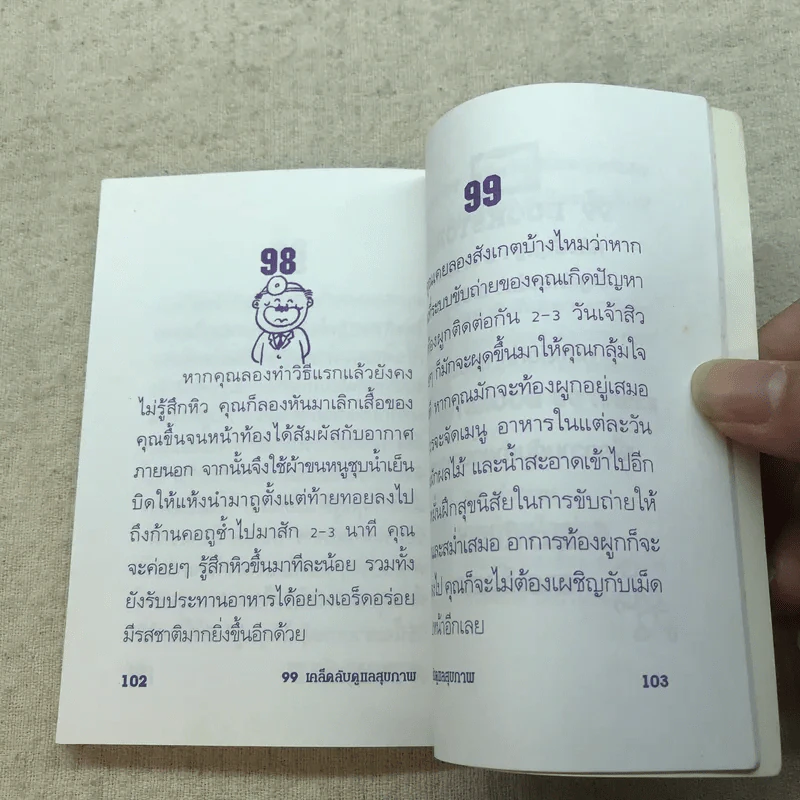 98
หากคุณลองทำวิธีแรกแล้วยังคง
ไม่รู้สึกหิว คุณก็ลองหันมาเลิกเสื้อของ
คุณขึ้นจนหน้าท้องได้สัมผัสกับอากาศ
ภายนอก จากนั้นจึงใช้ผ้าขนหนูชุบน้ำเย็น
บิดให้แห้งนำมาถูตั้งแต่ท้ายทอยลงไป
ถึงก้านคอถูซ้ำไปมาสัก 2-3 นาที คุณ
จะค่อยๆ รู้สึกหิวขึ้นมาทีละน้อย รวมทั้ง
ยังรับประทานอาหารได้อย่างเอร็ดอร่อย
มีรสชาติมากยิ่งขึ้นอีกด้วย
102
99 เคล็ดลับดูแลสุขภาพ
99
เคยลองสังเกตบ้างไหมว่าหาก
ระบบขับถ่ายของคุณเกิดปัญหา
ผูกติดต่อกัน 2-3 วันเจ้าสิว
ๆ ก็มักจะผุดขึ้นมาให้คุณกลุ้มใจ
หากคุณมักจะท้องผูกอยู่เสมอ
จะจัดเมนู อาหารในแต่ละวัน
ผลไม้ และน้ำสะอาดเข้าไปอีก
ฝึกสุขนิสัยในการขับถ่ายให้
และสม่ำเสมอ อาการท้องผูกก็จะ
ไป คุณก็จะไม่ต้องเผชิญกับเม็ด
หน้าอีกเลย
ดูแลสุขภาพ
103